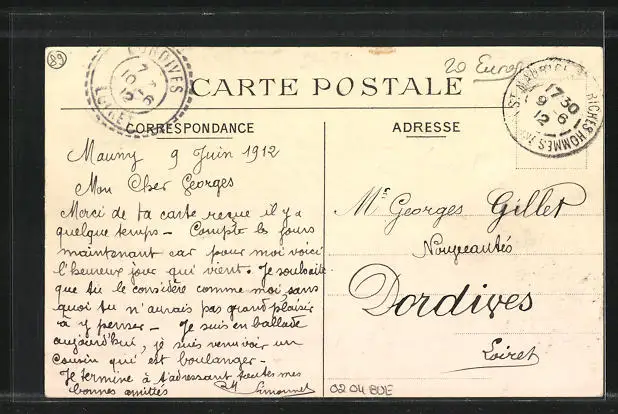 89
20 Euros
DORDIVES
7 =
10 - 6
12
LOIRET
CARTE POSTALE
ST MAURICE AUX RICHES HOMMES
17 30
9 - 6
12
CORRESPONDANCE
ADRESSE
Mauny 9 Juin 1912
Mon Cher Georges
Merci de ta carte reçue il y a
quelque temps - Compte les jours
maintenant car pour moi voici
l'heureux jour qui vient. Je souhaite
que tu le considère comme moi, sans
quoi tu n'aurais pas grand plaisir
à y penser - Je suis en ballade
aujourd'hui, je suis venu voir un
cousin qui est boulanger -
Je termine à t'adressant toutes mes
bonnes amitiés
Simonnet
Mr Georges Gillet
Nouveautés
Dordives
Loiret
02 04 BUE